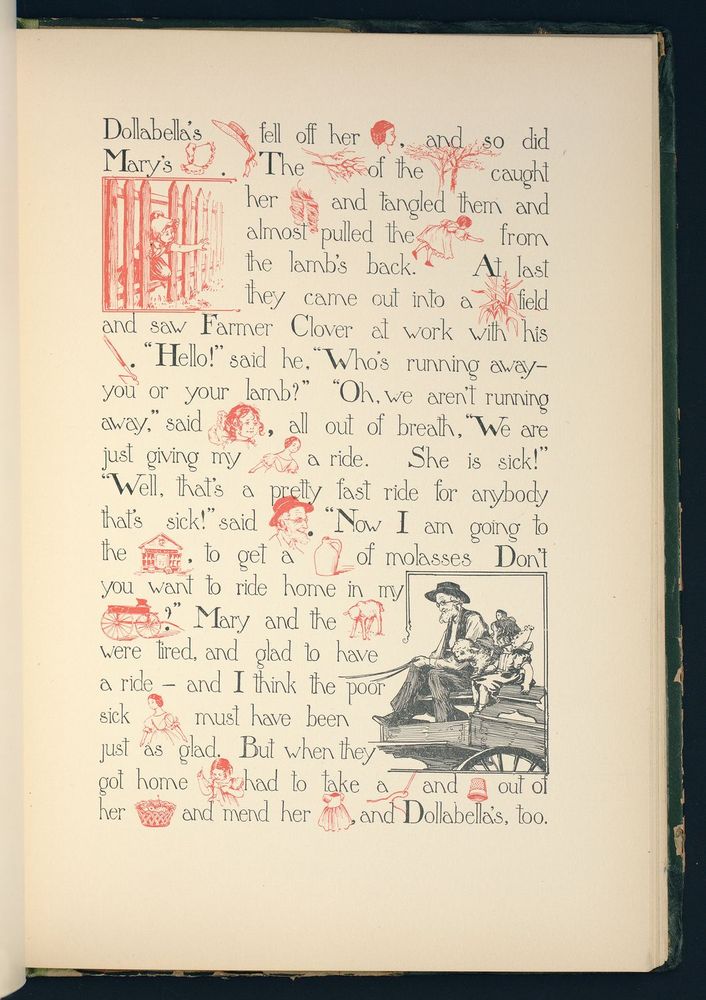 Dollabella's fell off her , and so did
Mary's . The of the caught
her and tangled them and
almost pulled the from
the lamb's back. At last
they came out into a field
and saw Farmer Clover at work with his
. "Hello!" said he, "Who's running away—
you or your lamb?" "Oh, we aren't running
away," said , all out of breath, "We are
just giving my a ride. She is sick!"
"Well, that's a pretty fast ride for anybody
that's sick!" said . "Now I am going to
the , to get a of molasses Don't
you want to ride home in my
?" Mary and the
were tired, and glad to have
a ride — and I think the poor
sick must have been
just as glad. But when they
got home had to take a and out of
her and mend her , and Dollabella's, too.